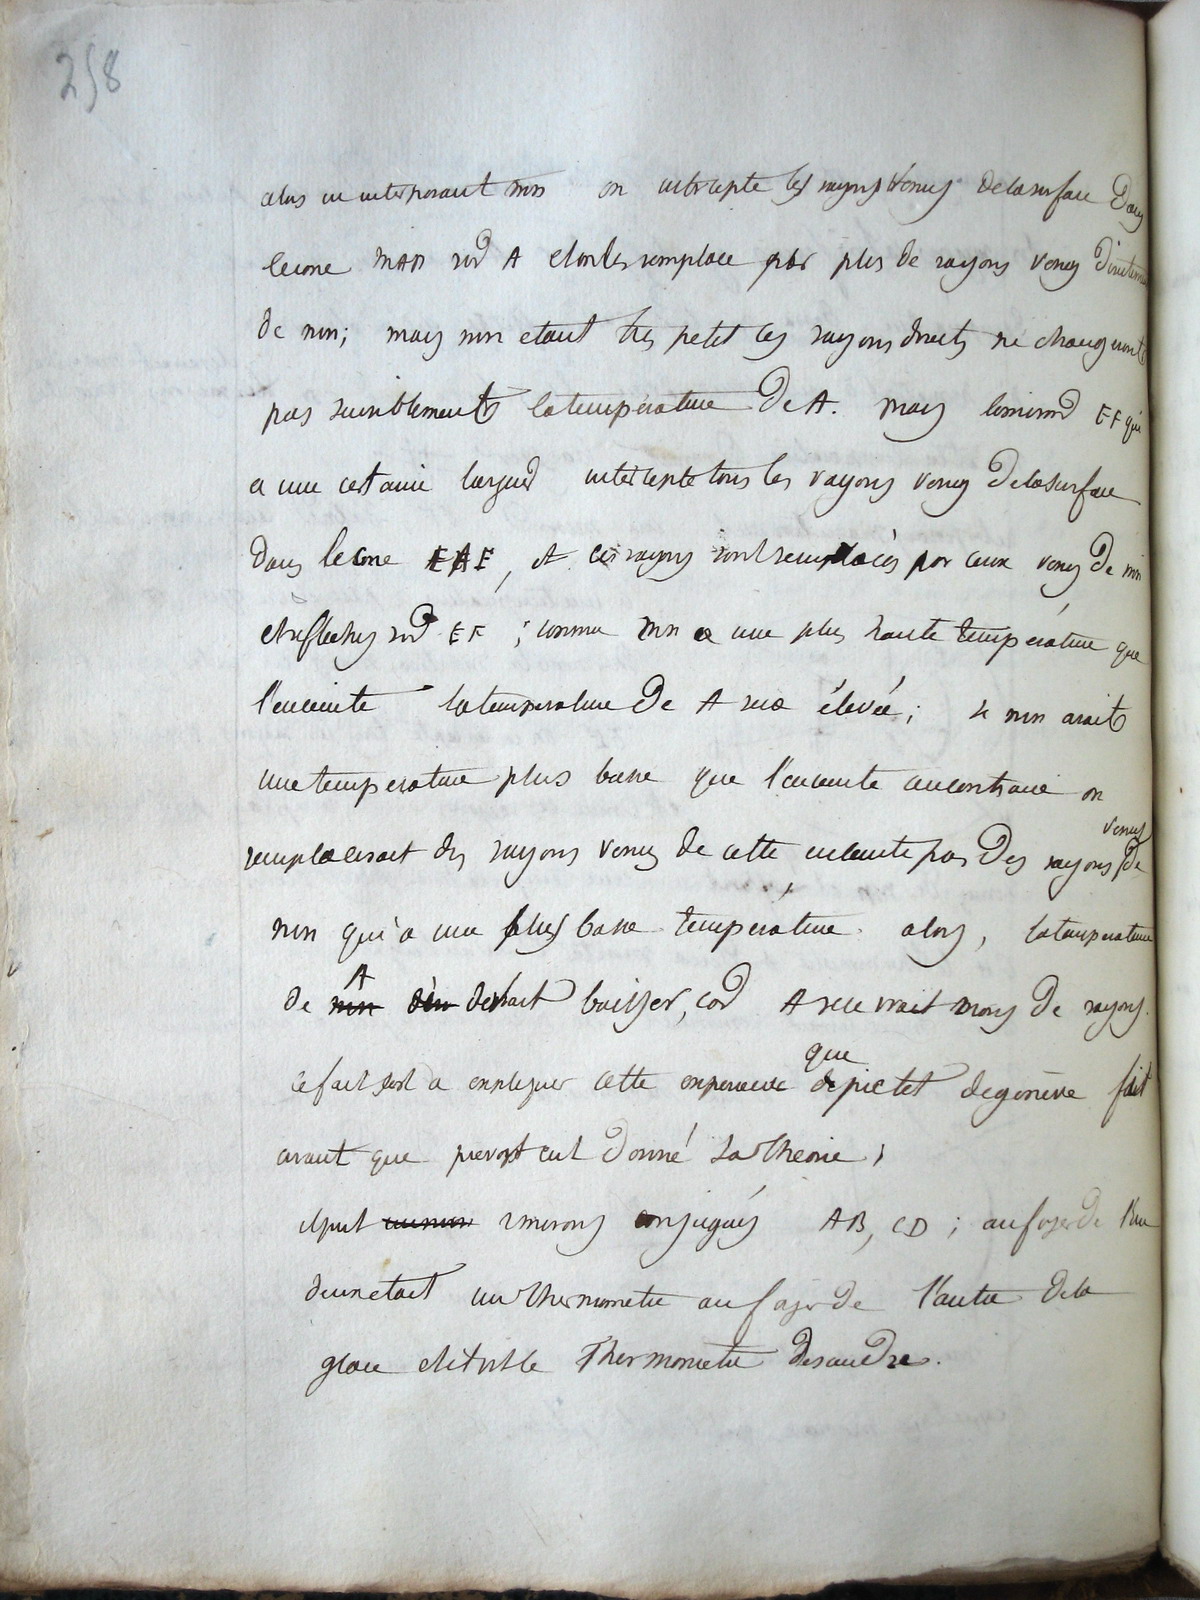 258
alors en interposant mn on intercepte les rayons venus de la surface dans
le cone mAn sur A et on les remplace par plus de rayons venus directement
de mn; mais mn etant tres petit ces rayons directs ne changeront
pas sensiblement la temperature de A. mais le miroir EF qui
a une certaine largeur intercepte tous les rayons venus de la surface
dans le cone EAF, et ces rayons sont remplacés par ceux venus de mn
et reflechis sur EF ; comme mn a une plus haute température que
l'enceinte la temperature de A sera élevée; si mn avait
une temperature plus basse que l'enceinte au contraire on
remplacerait des rayons venus de cette enceinte par des rayons venus de
mn qui a une plus basse température. alors, la temperature
de A devrait baisser, car A recevrait moins de rayons.
ce fait sert a expliquer cette experience que pictet de genève fait
avant que prevost eut donné sa theorie,
il prit 2 miroirs conjugués AB, CD ; au foyer de l'un
d'eux etait un thermometre au foyer de l'autre de la
glace et il vit le Thermometre descendre.